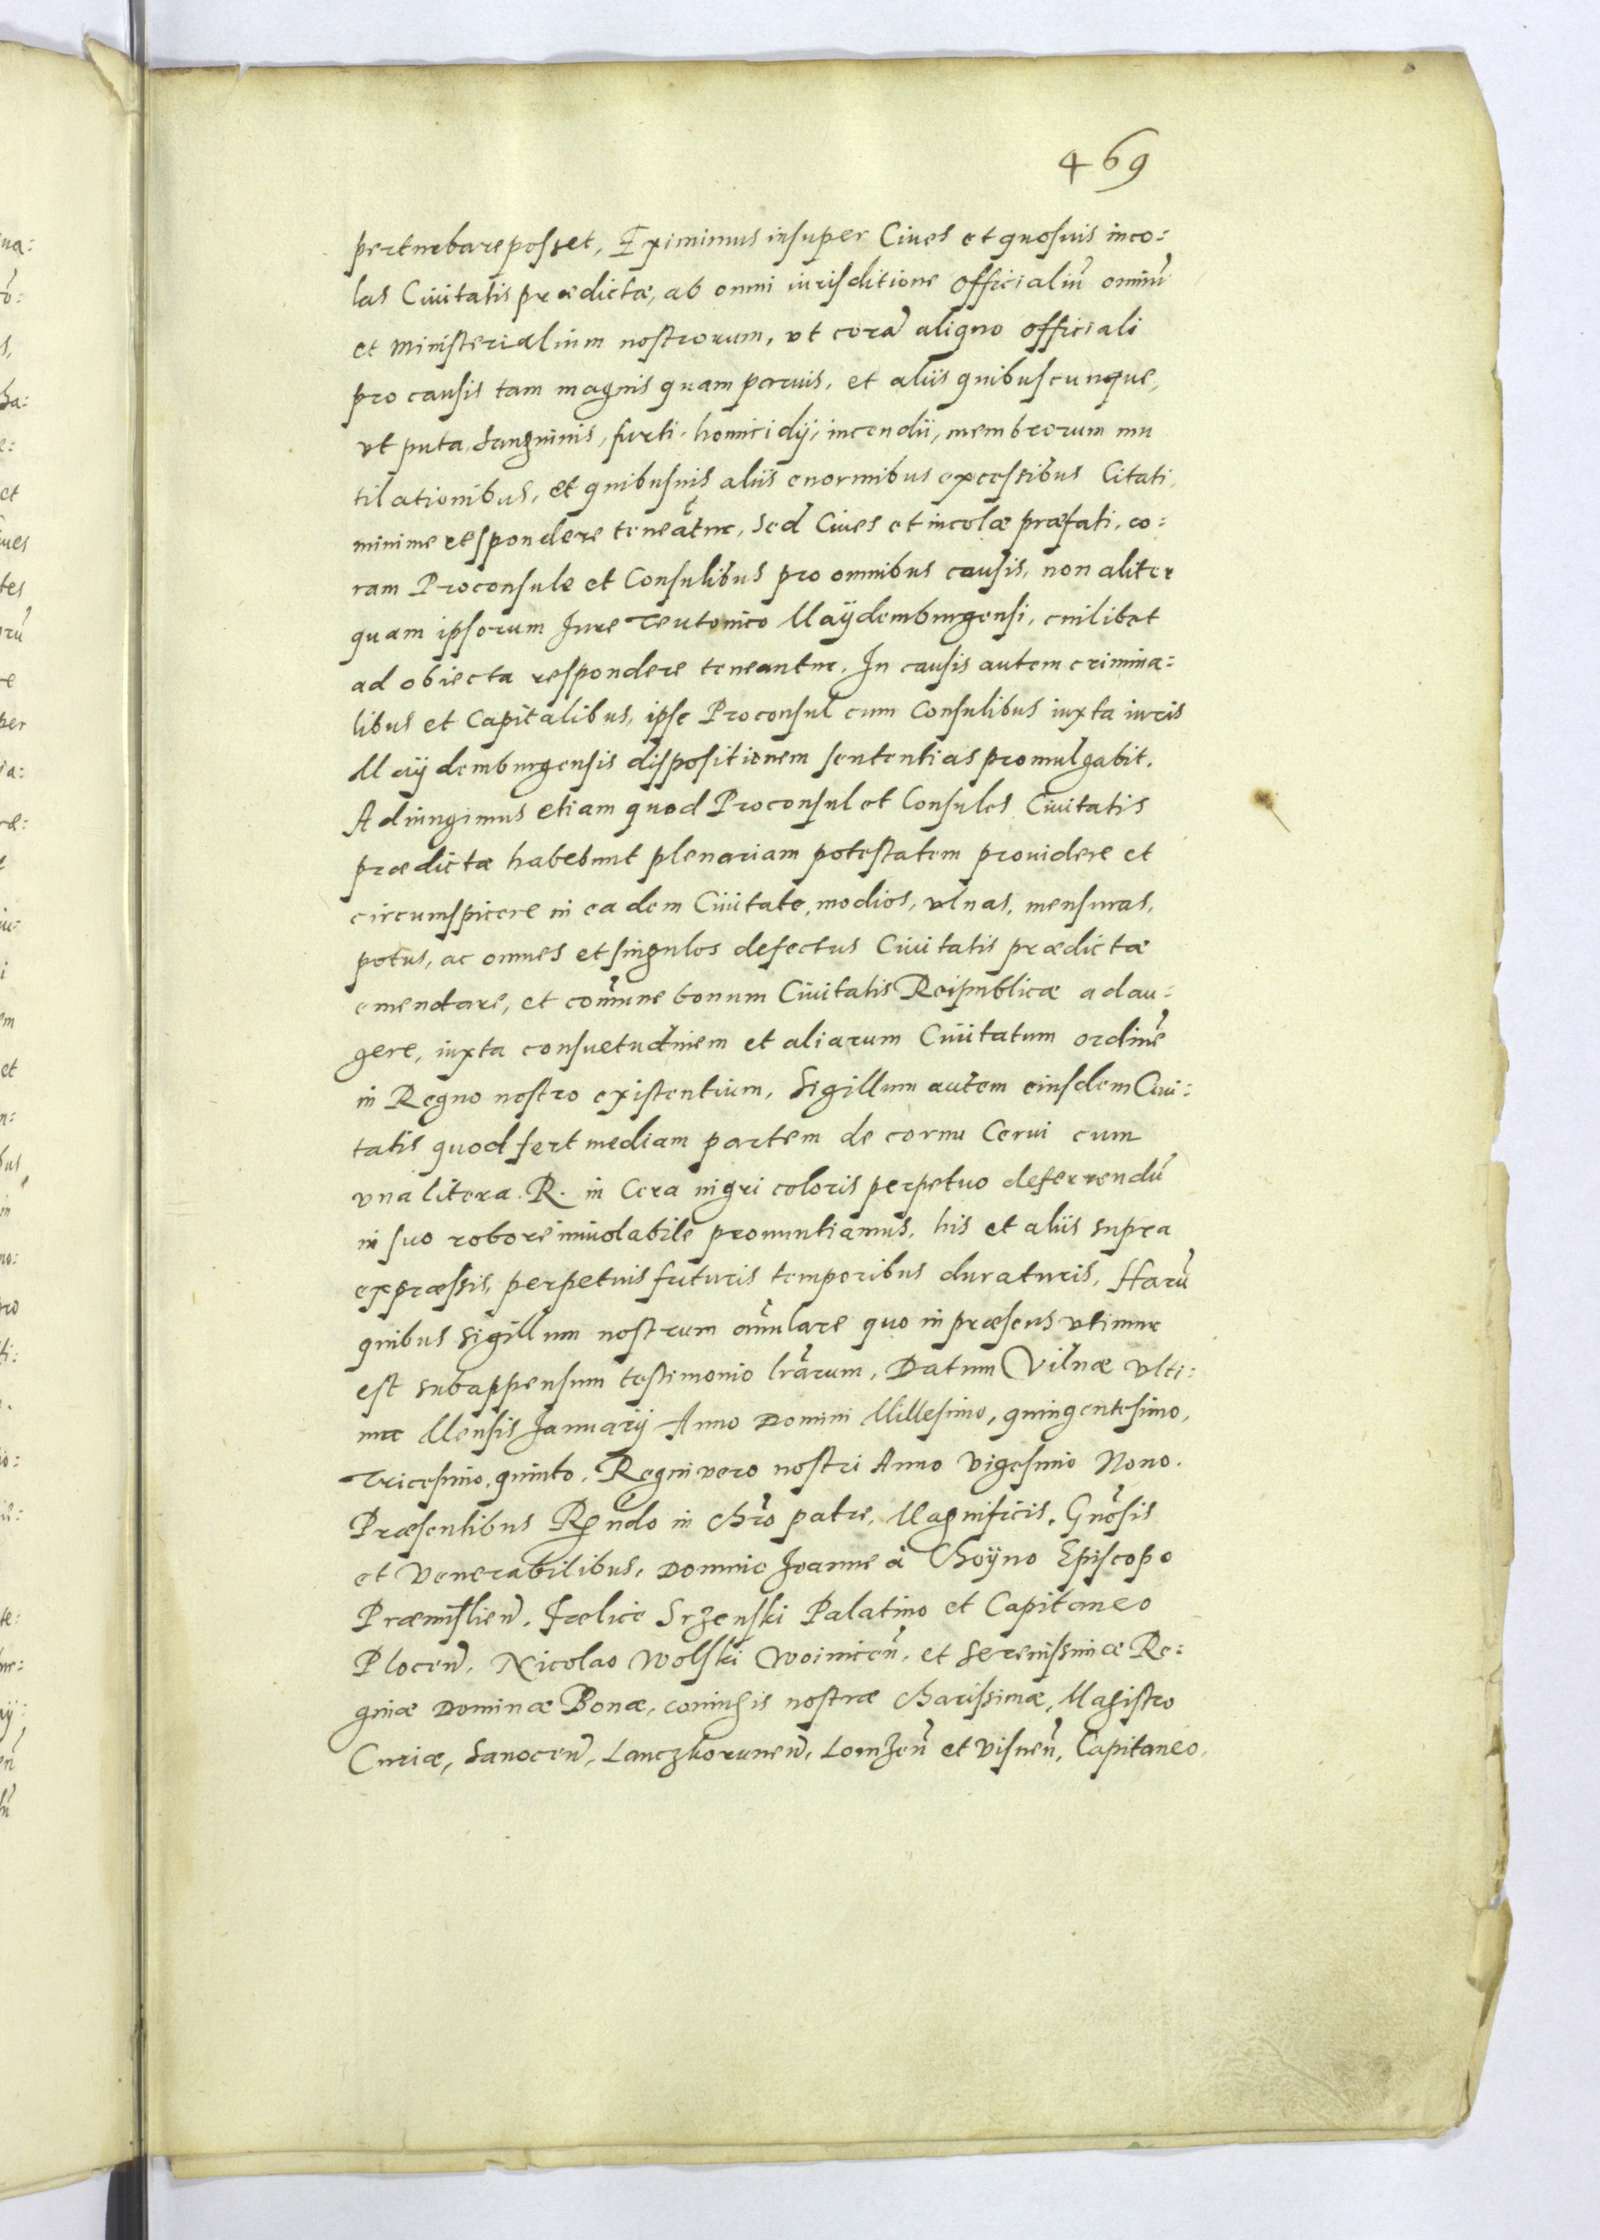 469
perturbare posset, Eximimus insuper Ciues et quosuis inco:
las Ciuitatis prædictæ, ab omni iurisditione officialiũ omniũ
et Ministerialium nostrorum, vt corã aliquo officiali
pro causis tam magnis quam paruis, et aliis quibuscunque,
vt puta, sanguinis, furti, homicidÿ, incendii, membrorum mu
tilationibus, et quibusuis aliis enormibus excessibus Citati,
minime respondere teneãtur, Sed Ciues et incolæ præfati, co:
ram Proconsule et Consulibus pro omnibus causis, non aliter
quam ipsorum Jure Teutonico Maÿdemburgensi, cuilibet
ad obiecta respondere teneantur. In causis autem crimina:
libus et Capitalibus, ipse Proconsul cum Consulibus iuxta iuris
Maÿdemburgensis dispositionem sententias promulgabit.
Adiungimus etiam quod Proconsul et Consules Ciuitatis
prædictæ habebunt plenariam potestatem prouidere et
circumspicere in eadem Ciuitate, modios, vlnas, mensuras,
potus, ac omnes et singulos defectus Ciuitatis prædictæ
emendare, et com̃une bonum Ciuitatis Reipublicæ adau:
gere, iuxta consuetudinem et aliarum Ciuitatum ordinẽ
in Regno nostro existentium, Sigillum autem eiusdem Ciui:
tatis quod fert mediam partem de cornu Cerui cum
vna litera .R. in Cera nigri coloris perpetuo deferrendũ
in suo robore inuiolabile pronuntiamus, his et aliis supra
expræssis, perpetuis futuris temporibus duraturis, Harũ
quibus sigillum nostrum añulare quo in præsens vtimur
est subappensum testimonio lr̃arum, Datum Vilnæ vlti:
mæ Mensis Januarÿ Anno Domini Millesimo, quingentesimo,
Tricesimo, quinto, Regni vero nostri Anno Vigesimo Nono.
Præsentibus Rñdo in chr̃o patre, Magnificis, Gñosis
et Venerabilibus, Domino Joanne à Choÿno Episcopo
Præmisłień, Fœlice Srzenski Palatino et Capitaneo
Plocen̄, Nicolao Wolski Woinicen̄, et Serenissimæ Re:
ginæ Dominæ Bonæ, coniugis nostræ charissimæ, Magistro
Curiæ, Sanocen̄, Lanczkorunen̄, Lomzen̄ et Visnen̄, Capitaneo,